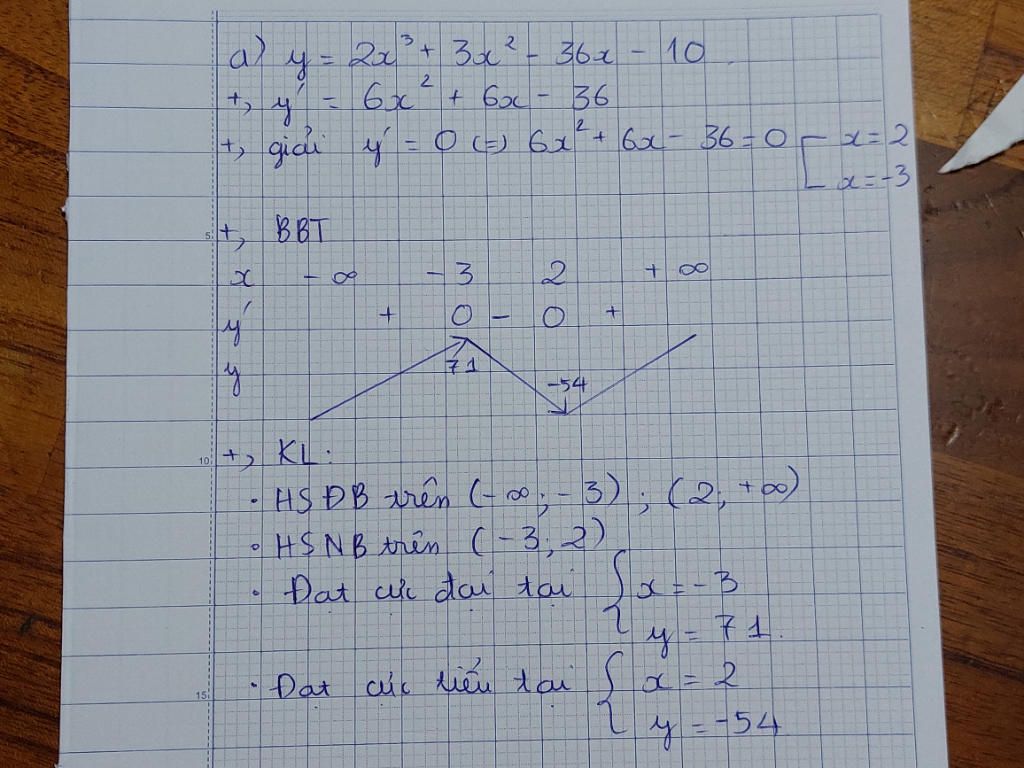 a) y = 2x³ + 3x² - 36x - 10
+, y' = 6x² + 6x - 36
+, giải y' = 0 (=) 6x² + 6x - 36 = 0 [ x = 2
x = -3
5 +, BBT
x -∞ -3 2 +∞
y' + 0 - 0 +
y 71 -54
10 +, KL:
• HSĐB trên (-∞; -3) ; (2; +∞)
• HSNB trên (-3; 2)
• Đạt cực đại tại { x = -3
y = 71.
15 • Đạt cực tiểu tại { x = 2
y = -54